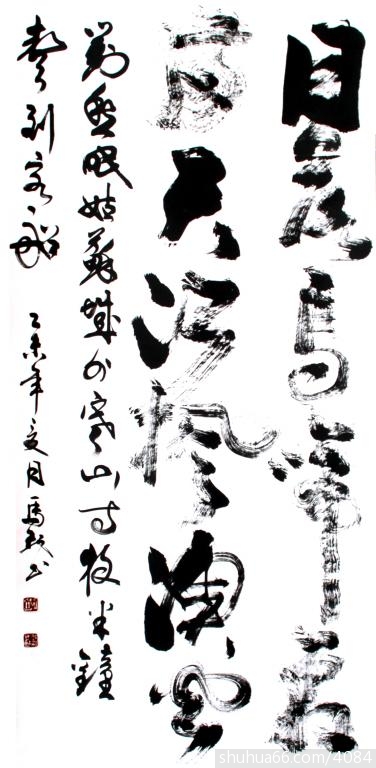 月落烏啼霜
滿天江楓漁火
對愁眠姑蘇城外寒山寺夜半鐘
聲到客船
乙未年夏月馬書
shuhua66.com/4084